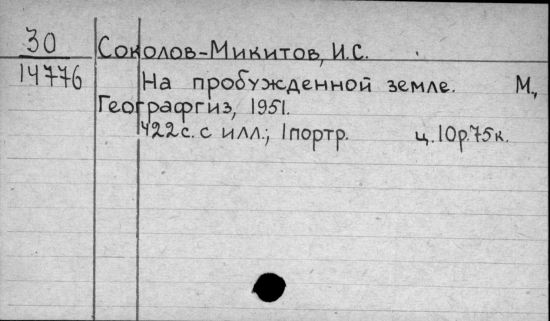 30
14776
Соколов-Микитов, И.С.
На пробужденной земле. М.,
Географгиз, 1951.
422с. с илл.; 1портр. ц.10р.75к.